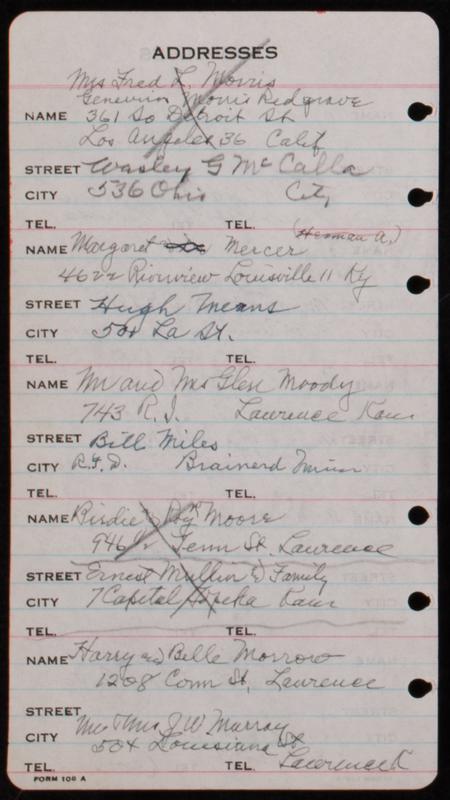 ADDRESSES
Mrs Fred L. Morris
Genevieve Morris Redgrave
NAME 361 So Detroit St
Los Angeles 36 Calif
STREET Wasley G McCalla
CITY 536 Ohio City
TEL. TEL. (Herman A.)
NAME Margaret Mercer
4622 Rionview Louisville 11 Ky
STREET Hugh Means
CITY 504 La St.
TEL. TEL.
NAME Mr and Mrs Glen Moody
743 R.I. Lawrence Kans
STREET Bill Miles
CITY R.F.D. Brainerd Minn
TEL. TEL.
NAME Birdie & Moore
946 1/2 Tenn St. Lawrence
STREET Ernest Mullin & Family
CITY 7 Capitol Topeka Kans
TEL. TEL.
NAME Harry and Belle Morrow
1208 Conn St, Lawrence
STREET
Mr & Mrs J W Murray
CITY 504 Louisiana St
TEL. TEL. Lawrence K
FORM 106 A